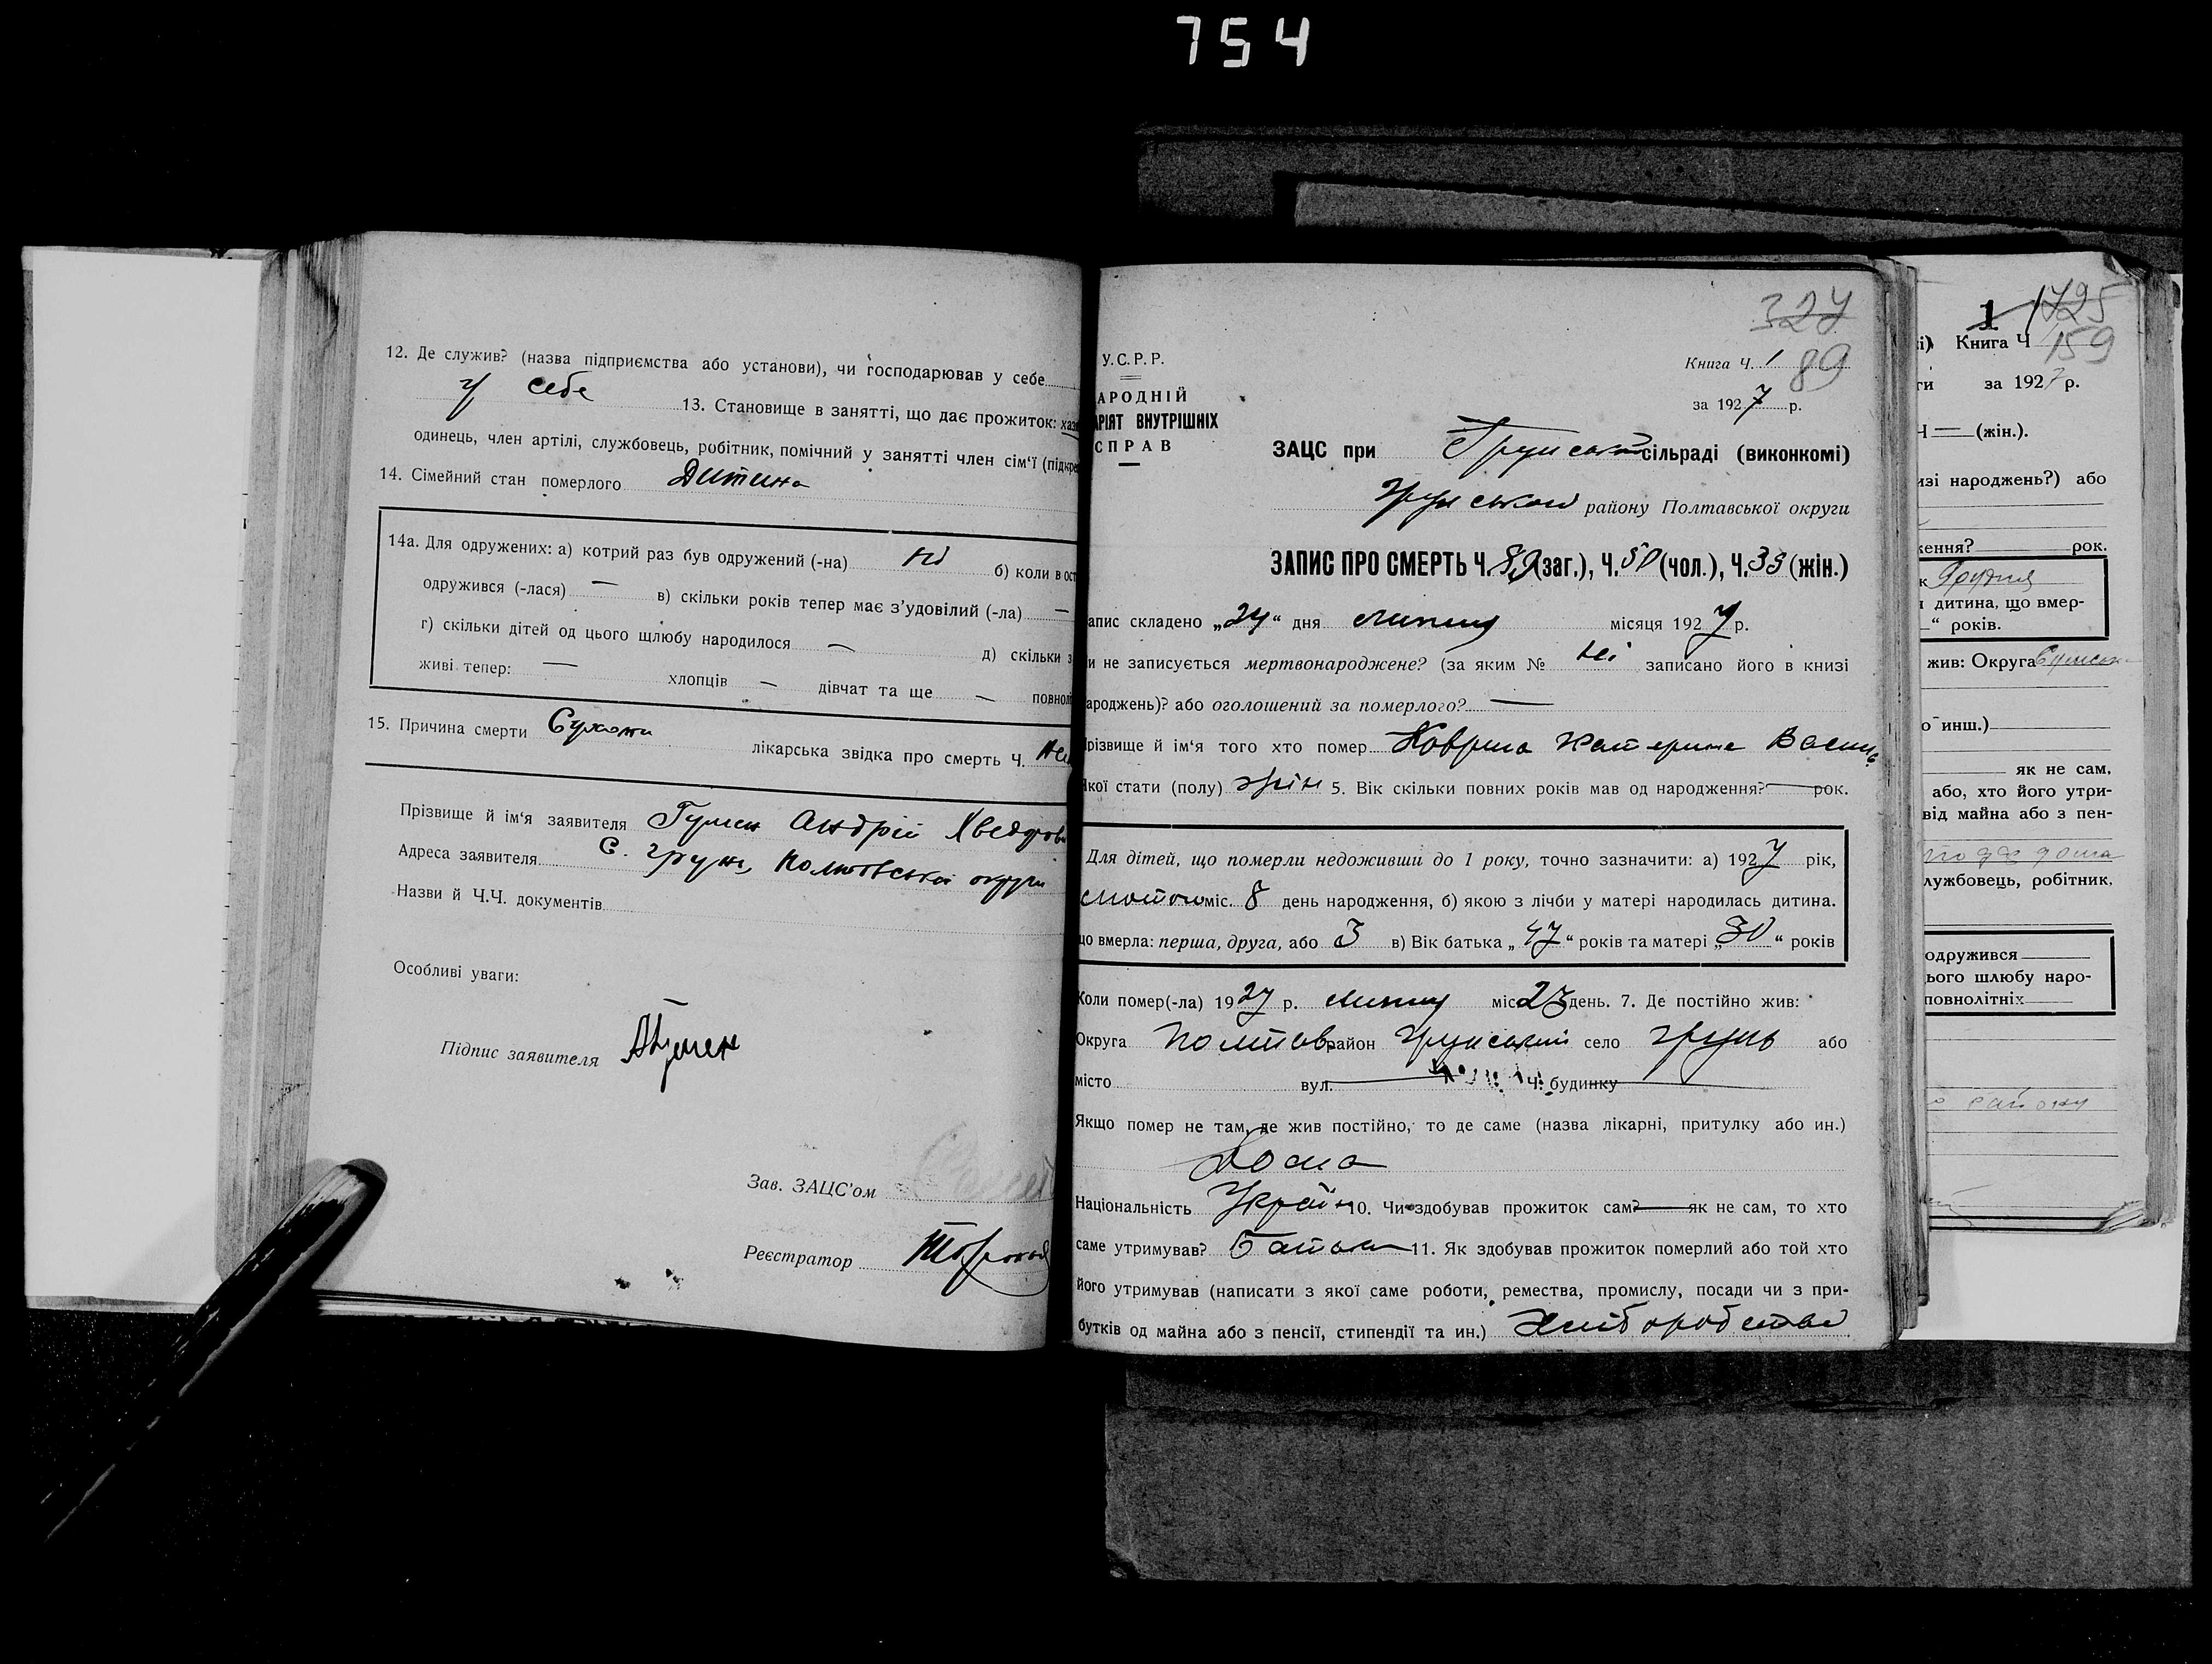 754
12. Де служив? (назва підприємства або установи), чи господарював у себе
у себе 13. Становище в занятті, що дає прожиток: хаз
одинець, член артілі, службовець, робітник, помічний у занятті член сім'ї (підкре
14. Сімейний стан померлого Дитина
14а. Для одружених: а) котрий раз був одружений (-на) ні б) коли в ост
одружився (-лася) — в) скільки років тепер має з'удовілий (-ла) —
г) скільки дітей од цього щлюбу народилося — д) скільки з
живі тепер: — хлопців — дівчат та ще — повнол
15. Причина смерти Сухоти лікарська звідка про смерть Ч.
Прізвище й ім'я заявителя Гумен Андрій Хведоров
Адреса заявителя С. Грунь, Полтавської округи
Назви й Ч.Ч. документів
Особливі уваги:
Підпис заявителя АГумен
Зав. ЗАЦС'ом
Реєстратор
324
89
У.С.Р.Р.
Книга Ч. 1
АРОДНІЙ
АРІЯТ ВНУТРІШНІХ
СПРАВ
за 1927 р.
ЗАЦС при Грунській сільраді (виконкомі)
Грунського району Полтавської округи
ЗАПИС ПРО СМЕРТЬ Ч. 89 (заг.), Ч. 50 (чол.), Ч. 39 (жін.)
апис складено „24“ дня липня місяця 1927 р.
и не записується мертвонароджене? (за яким № ні записано його в книзі
ароджень)? або оголошений за померлого? —
різвище й ім'я того хто помер Коврига Катерина Василь
кої стати (полу) жін 5. Вік скільки повних років мав од народження? — рок.
Для дітей, що померли недоживши до 1 року, точно зазначити: а) 1927 рік,
лютого міс. 8 день народження, б) якою з лічби у матері народилась дитина.
що вмерла: перша, друга, або 3 в) Вік батька „47“ років та матері „30“ років
Коли помер(-ла) 1927 р. липня міс 23 день. 7. Де постійно жив:
Округа Полтав район Грунський село Грунь або
місто вул. Ч. будинку
Якщо помер не там, де жив постійно, то де саме (назва лікарні, притулку або ин.)
Дома
Національність Україн 10. Чи здобував прожиток сам? — як не сам, то хто
саме утримував? Батьки 11. Як здобував прожиток померлий або той хто
його утримував (написати з якої саме роботи, ремества, промислу, посади чи з при-
бутків од майна або з пенсії, стипендії та ин.) Хліборобство
1 1725
159
і) Книга Ч
ги за 1927 р.
Ч — (жін.).
изі народжень?) або
ження? рок.
к Грудня
дитина, що вмер-
—“ років.
жив: Округа Сумськ
о инш.)
як не сам,
або, хто його утри-
від майна або з пен-
лужбовець, робітник,
одружився
ього шлюбу наро-
повнолітніх
району